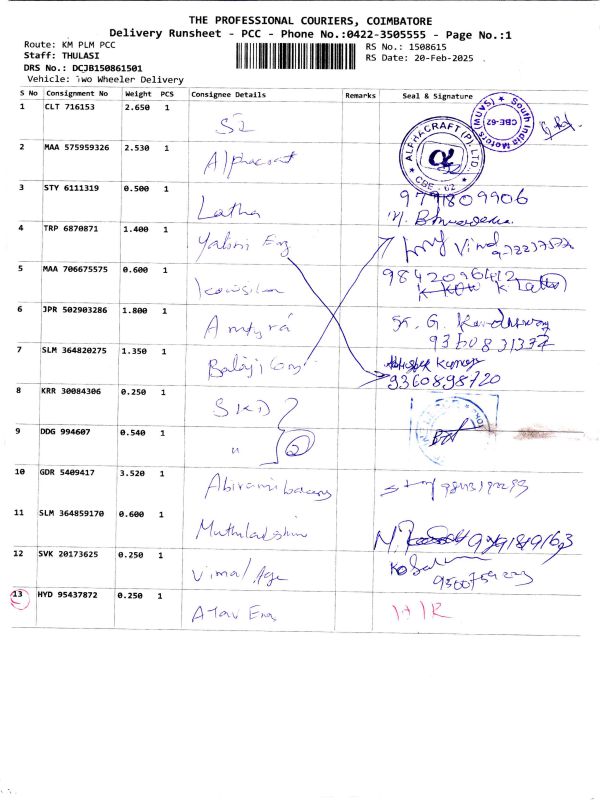 THE PROFESSIONAL COURIERS, COIMBATORE
Delivery Runsheet - PCC - Phone No.:0422-3505555 - Page No.:1
Route: KM PLM PCC
RS No.: 1508615
Staff: THULASI
RS Date: 20-Feb-2025
DRS No.: DCJB150861501
Vehicle: Two Wheeler Delivery
S No Consignment No Weight PCS Consignee Details Remarks Seal & Signature
South India Motors (MUVS) CBE-62
1 CLT 716153 2.650 1 S2
ALPHACRAFT (P) LTD. CBE - 62
2 MAA 575959326 2.530 1 Alphacraft
3 STY 6111319 0.500 1 Latha 9791809906
4 TRP 6870871 1.400 1 Eng Vinod
5 MAA 706675575 0.600 1 9842096412
6 JPR 502903286 1.800 1 G.
9360831337
7 SLM 364820275 1.350 1 Balaji Kumar
9360898720
8 KRR 30084306 0.250 1 SKD
9 DDG 994607 0.540 1 " 2
10 GDR 5409417 3.520 1
11 SLM 364859170 0.600 1 Muthulakshmi
12 SVK 20173625 0.250 1 Vimal Age
13 HYD 95437872 0.250 1 Eng